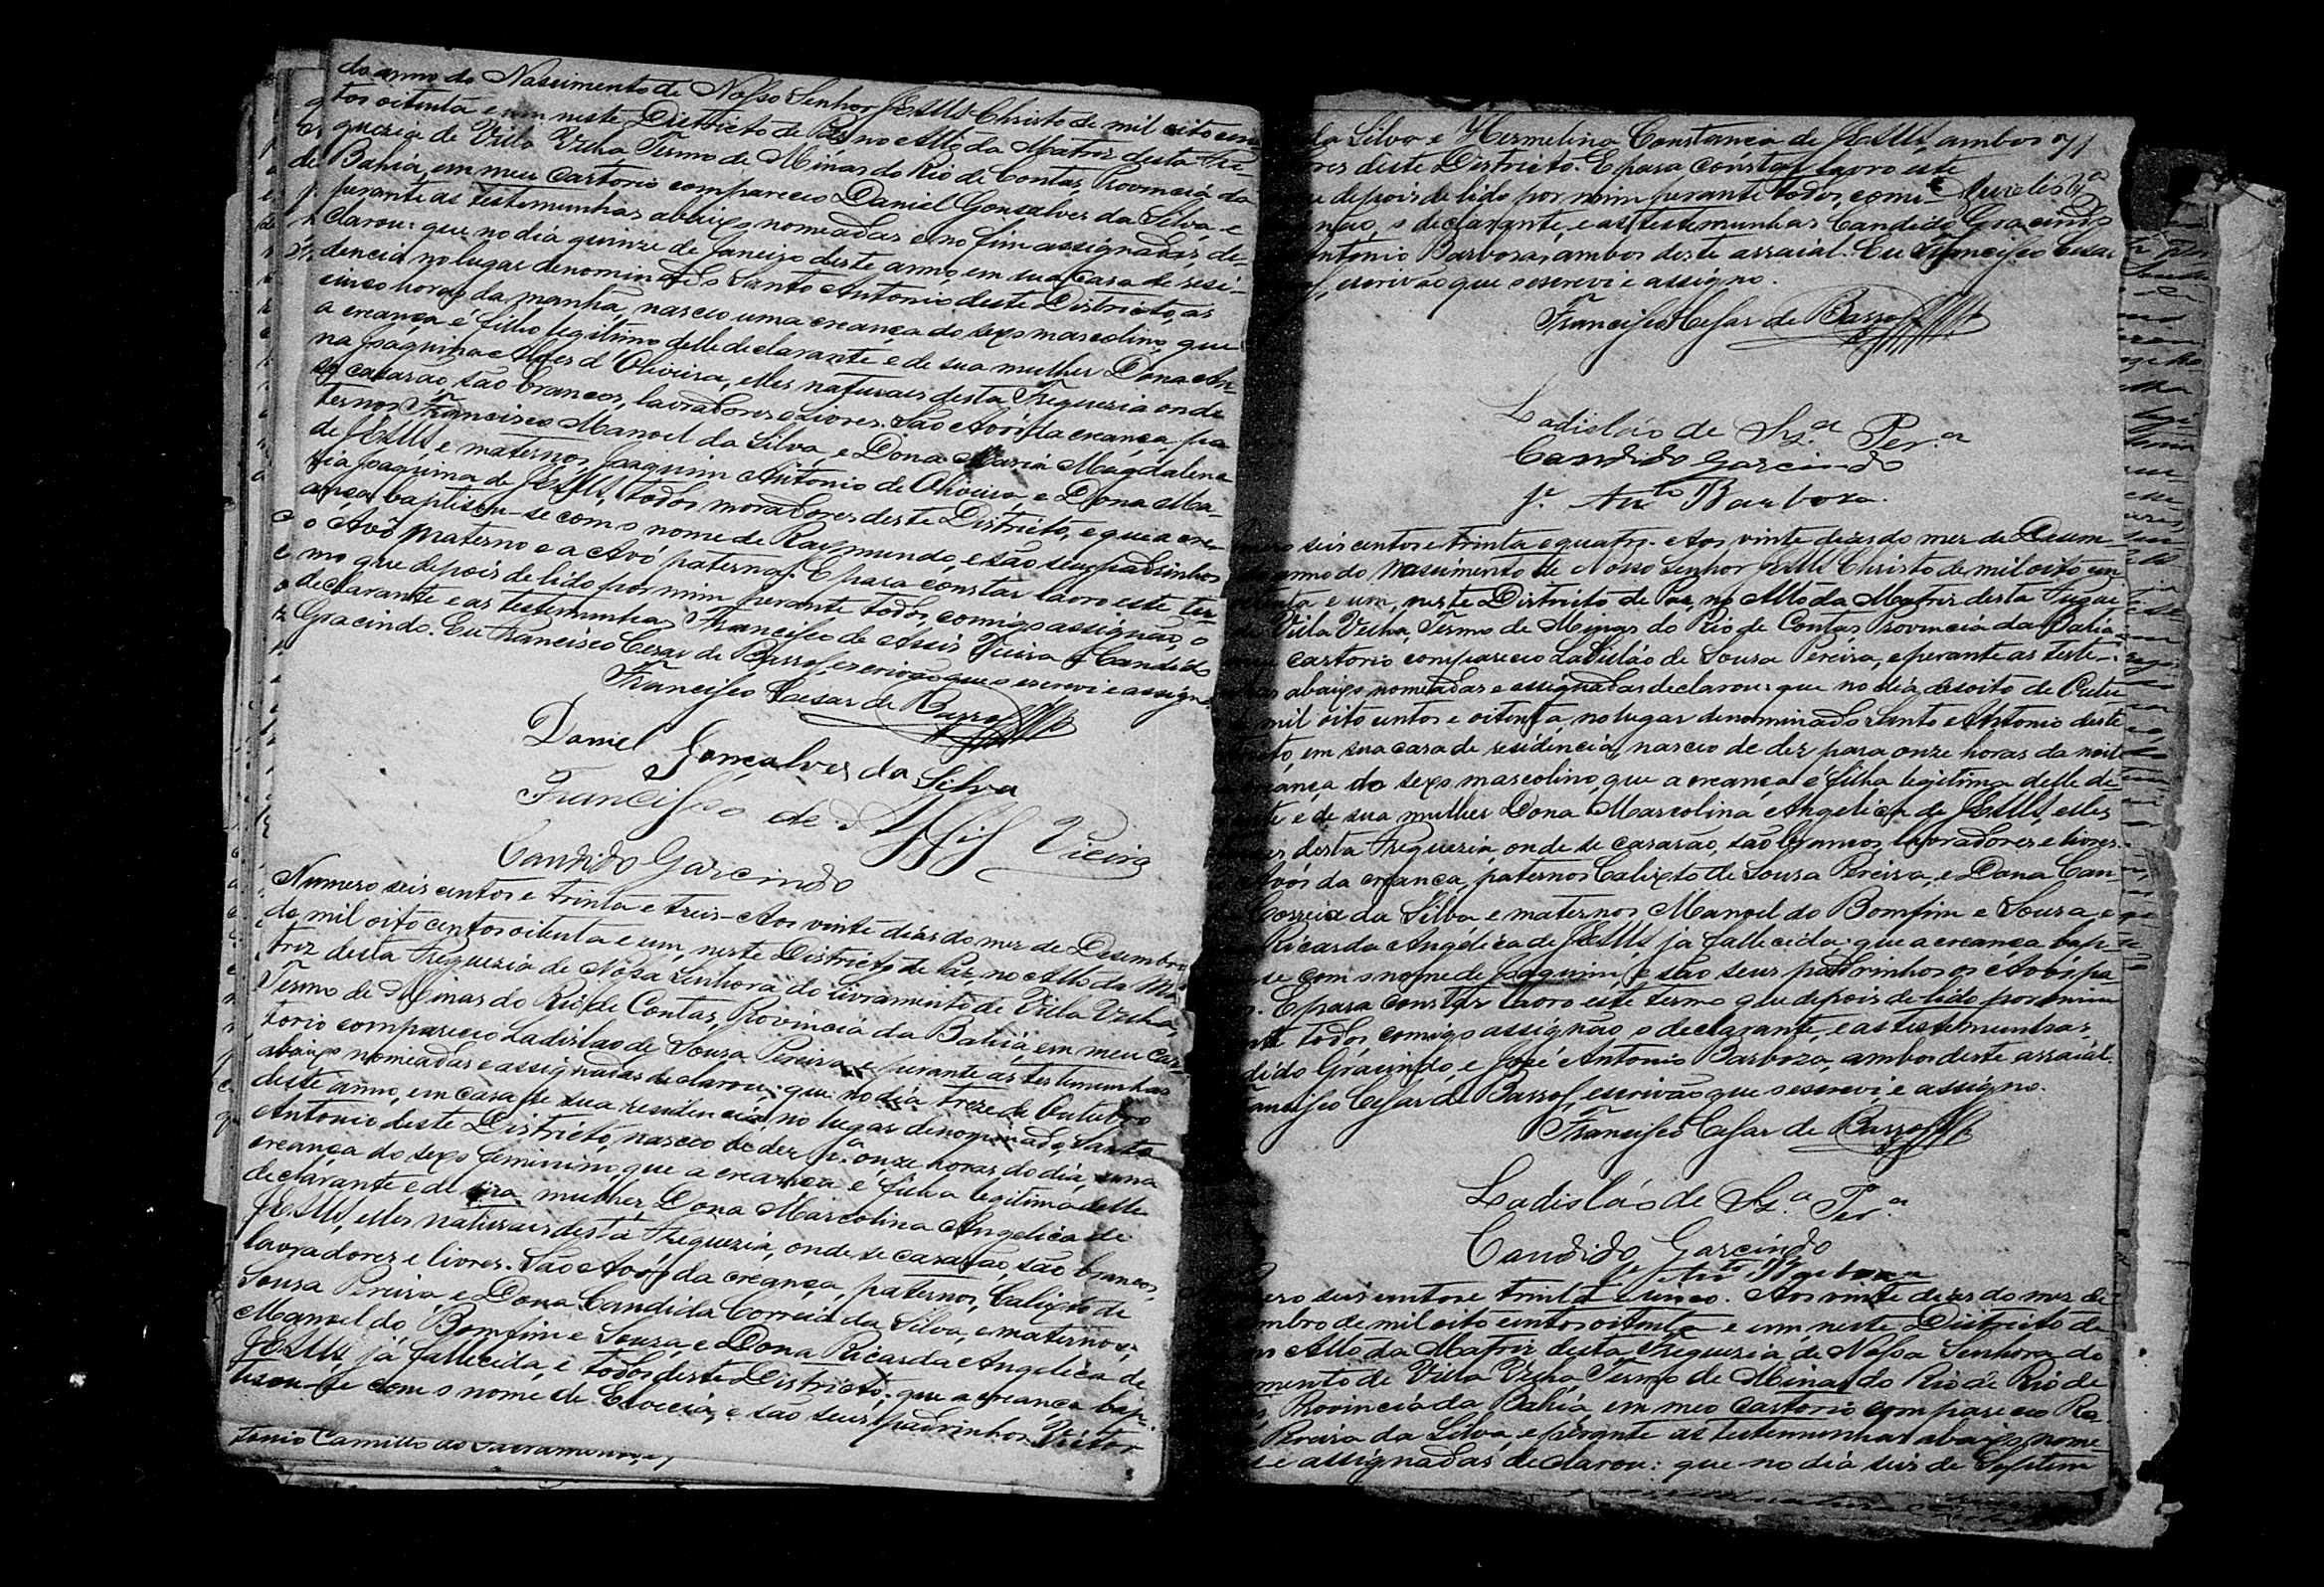 do anno do Nascimento de Nosso Senhor JESUS Christo de mil oito cen
tos oitenta e um neste Districto de Paz no Alto da Matriz desta Fre-
guezia de Villa Velha Termo de Minas do Rio de Contas, Provincia da
Bahia, em meu Cartorio compareceo Daniel Gonsalves da Silva, e
perante as testemunhas abaixo nomeadas e no fim assignadas, de-
clarou: que no dia quinze de Janeiro deste anno, em sua casa de resi-
dencia no lugar denominado Santo Antonio deste Districto, as
cinco horas da manhã, nasceo uma creança do sexo mascolino, que
a creança é filho legitimo delle declarante e de sua mulher Dona An-
na Joaquina Alves d'Oliveira, elles naturaes desta Freguezia onde
se casarão, são brancos, lavradores e livres. São Avós da creança, pa
ternos Francisco Manoel da Silva, e Dona Maria Magdalena
de JESUS, e maternos Joaquim Antonio de Oliveira e Dona Ma-
ria Joaquina de JESUS, todos moradores deste Districto, e que a cre-
ança baptisou-se com o nome de Raymundo, e são seus padrinhos
o Avô materno e a Avó paterna. E para constar lavro este ter-
mo que depois de lido por mim perante todos, comigo assignão, o
declarante e as testemunhas Francisco de Assis Vieira e Candido
Gracindo. Eu Francisco Cesar de Barros, escrivão que o escrevi e assigno.
Francisco Cesar de Barros
Daniel Gonçalves da Silva
Francisco de Assis Vieira
Candido Garcindo
Numero seis centos e trinta e treis - Aos vinte dias do mez de Desembro
do mil oito centos oitenta e um, neste Districto de Paz, no Alto da Ma
triz desta Freguezia de Nossa Senhora do Livramento de Villa Velha,
Termo de Minas do Rio de Contas, Provincia da Bahia, em meu Car
torio compareceo Ladislao de Sousa Pereira, e perante as testemunhas
abaixo nomeadas e assignadas declarou: que no dia treze de Outubro
deste anno, em casa de sua residencia, no lugar denominado Santo
Antonio deste Districto, nasceo de dez pª onze horas do dia, uma
creança do sexo feminino, que a creança é filha legitima delle
declarante e de sua mulher, Dona Marcolina Angelica de
JESUS, elles naturaes desta Freguezia, onde se casarão, são brancos,
lavradores e livres. São Avós da creança, paternos, Calixto de
Sousa Pereira, e Dona Candida Correia da Silva, e maternos,
Manoel do Bomfim e Sousa e Dona Ricarda Angelica de
JESUS, já fallecida, e todos deste Districto; que a creança bap-
tisou-se com o nome de , e são seus padrinhos Victor
tonio Camillo do Sacramento, e
da Silva e Hermelina Constancia de JESUS, ambos 71
res deste Districto. E para constar lavro este
e depois de lido por mim perante todos, comi-
não, o declarante, e as testemunhas Candido Gracindo
Antonio Barbosa, ambos deste arraial. Eu Francisco Cesar
, escrivão que o escrevi e assigno.
Francisco Cesar de Barros
Ladisláo de Szª Perª
Candido Garcindo
Je Anto Barboza.
mero seis centos e trinta e quatro. Aos vinte dias do mez de Dezem-
anno do Nascimento de Nosso Senhor JESUS Christo de mil oito cen
tenta e um, neste Districto de Paz, no Alto da Matriz desta Fregue
de Villa Velha, Termo de Minas do Rio de Contas, Provincia da Bahia
meu cartorio compareceo Ladisláo de Sousa Pereira, e perante as teste-
nhas abaixo nomeadas e assignadas declarou: que no dia desoito de Outu
e mil oito centos e oitenta, no lugar denominado Santo Antonio deste
tricto, em sua casa de residencia, nasceo de dez para onze horas da noite
creança do sexo mascolino, que a creança é filha legitima delle de-
ante e de sua mulher Dona Marcolina Angelica de JESUS, elles
es desta Freguezia, onde se casarão, são brancos, lavradores e livres.
Avós da creança, paternos Calixto de Sousa Pereira, e Dona Can-
Correia da Silva e maternos Manoel do Bomfim e Sousa, e
Ricarda Angelica de JESUS, já fallecida; que a creança bap-
se com o nome de Joaquim, e são seus padrinhos os Avós pa-
s. E para constar lavro este termo que depois de lido por mim
nte todos, comigo assignão, o declarante, e as testemunhas,
dido Gracindo, e José Antonio Barboza, ambos deste arraial.
ancisco Cesar de Barros, escrivão que o escrevi, e assigno.
Francisco Cesar de Barros
Ladisláo de Szª Perª
Candido Garcindo
Je Anto Barboza
ero seis centos e trinta e cinco. Aos vinte dias do mez de
embro de mil oito centos oitenta e um, neste Districto de
Alto da Matriz desta Freguezia de Nossa Senhora do
mento de Villa Velha Termo de Minas do Rio de Rio de
Provincia da Bahia, em meo Cartorio compareceo Ra-
Pereira da Silva, e perante as testemunhas abaixo nome-
s e assignadas declarou: que no dia seis de Setem